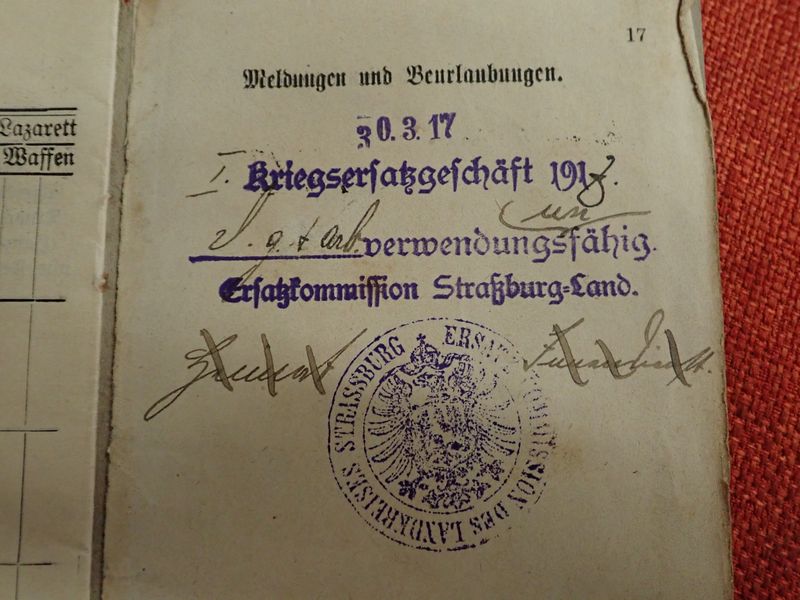 17
Lazarett
Waffen
Meldungen und Beurlaubungen.
30.3.17
I. Kriegsersatzgeschäft 1917.
un
D. g. + arb. verwendungsfähig.
Ersatzkommission Straßburg-Land.
ERSATZKOMMISSION DES LANDKREISES STRASSBURG